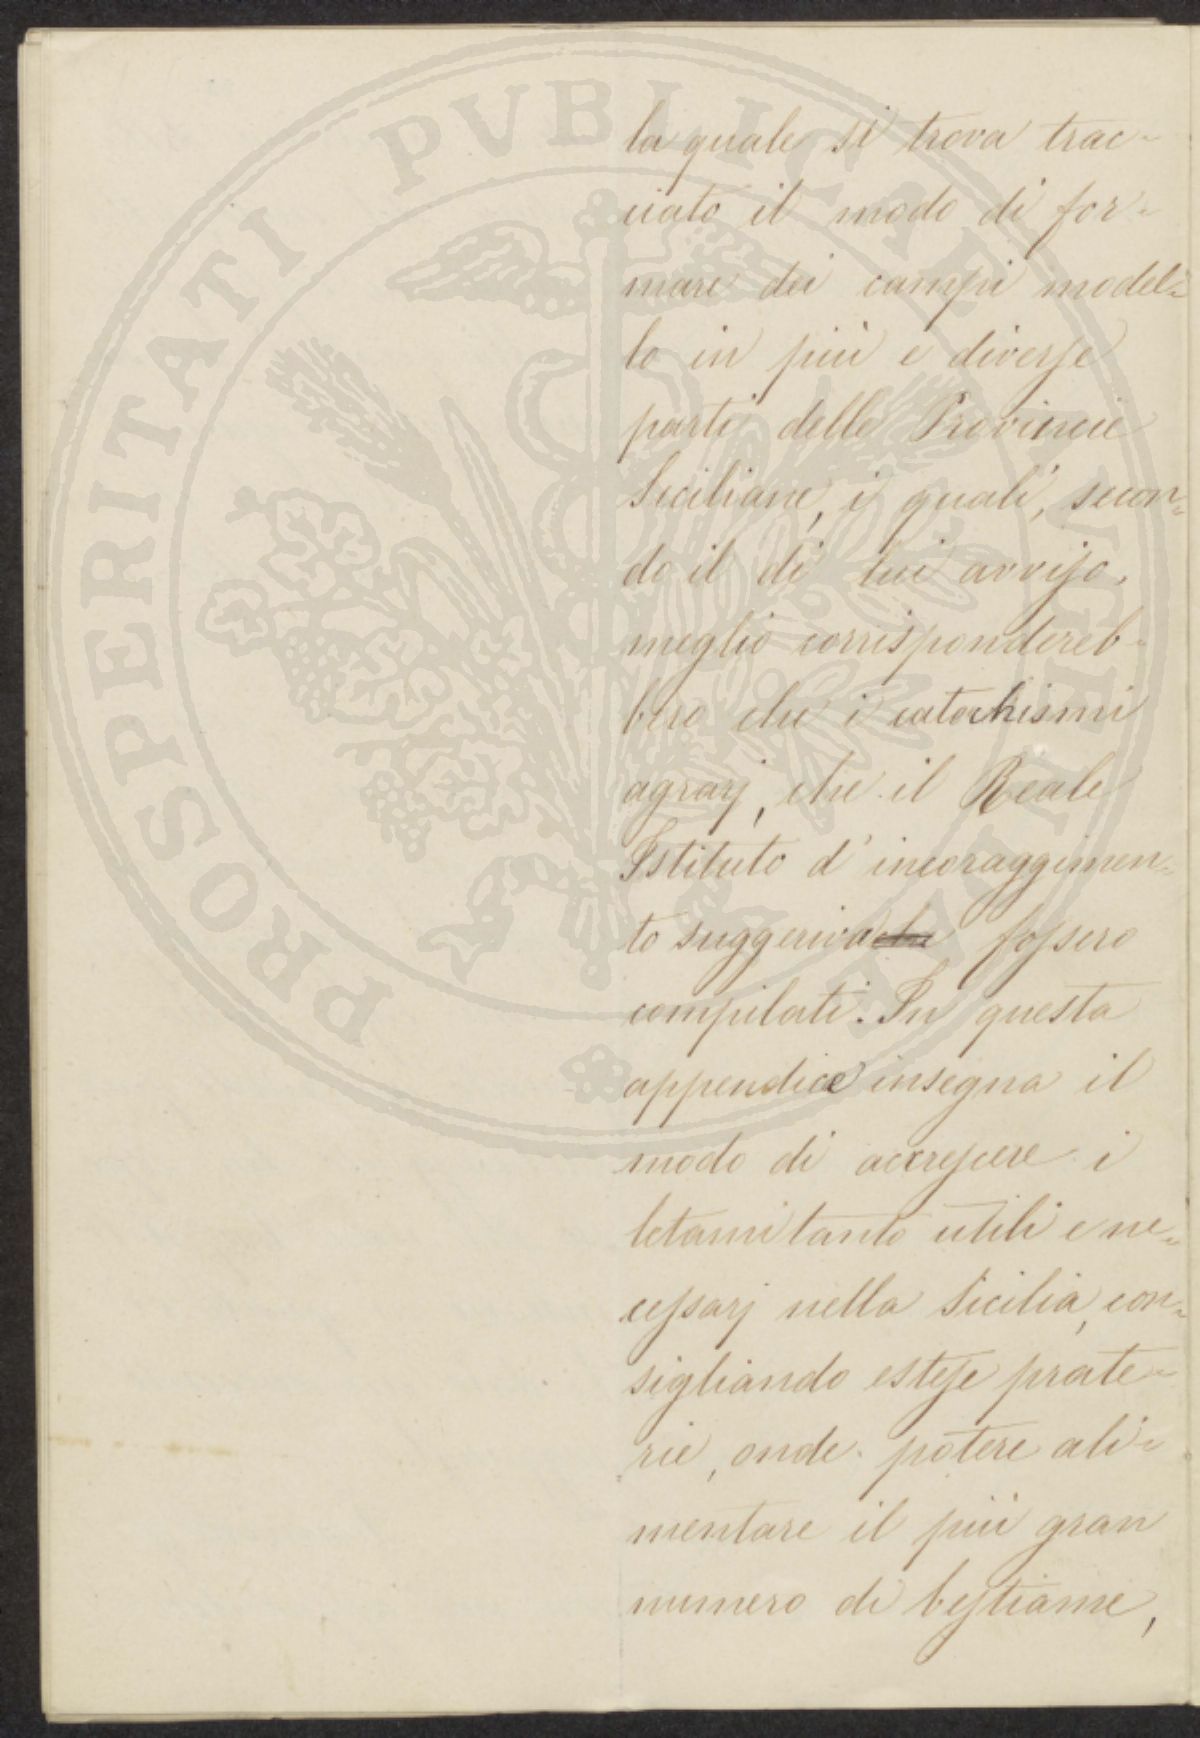 la quale si trova trac=
ciato il modo di for=
mare dei campi model=
lo in più e diverse
parti delle Provincie
Siciliane, i quali, secon=
do il di lui avviso,
meglio corrispondereb=
bero che i catechismi
agrarj, che il Reale
Istituto d'incoraggimen=
to suggeriva che fossero
compilati. In questa
appendice insegna il
modo di accrescere i
letami tanto utili e ne=
cessarj nella Sicilia, con=
sigliando estese prate=
rie, onde potere ali=
mentare il più gran
numero di bestiame,
PROSPERITATI PVBLICAE AVGENDAE